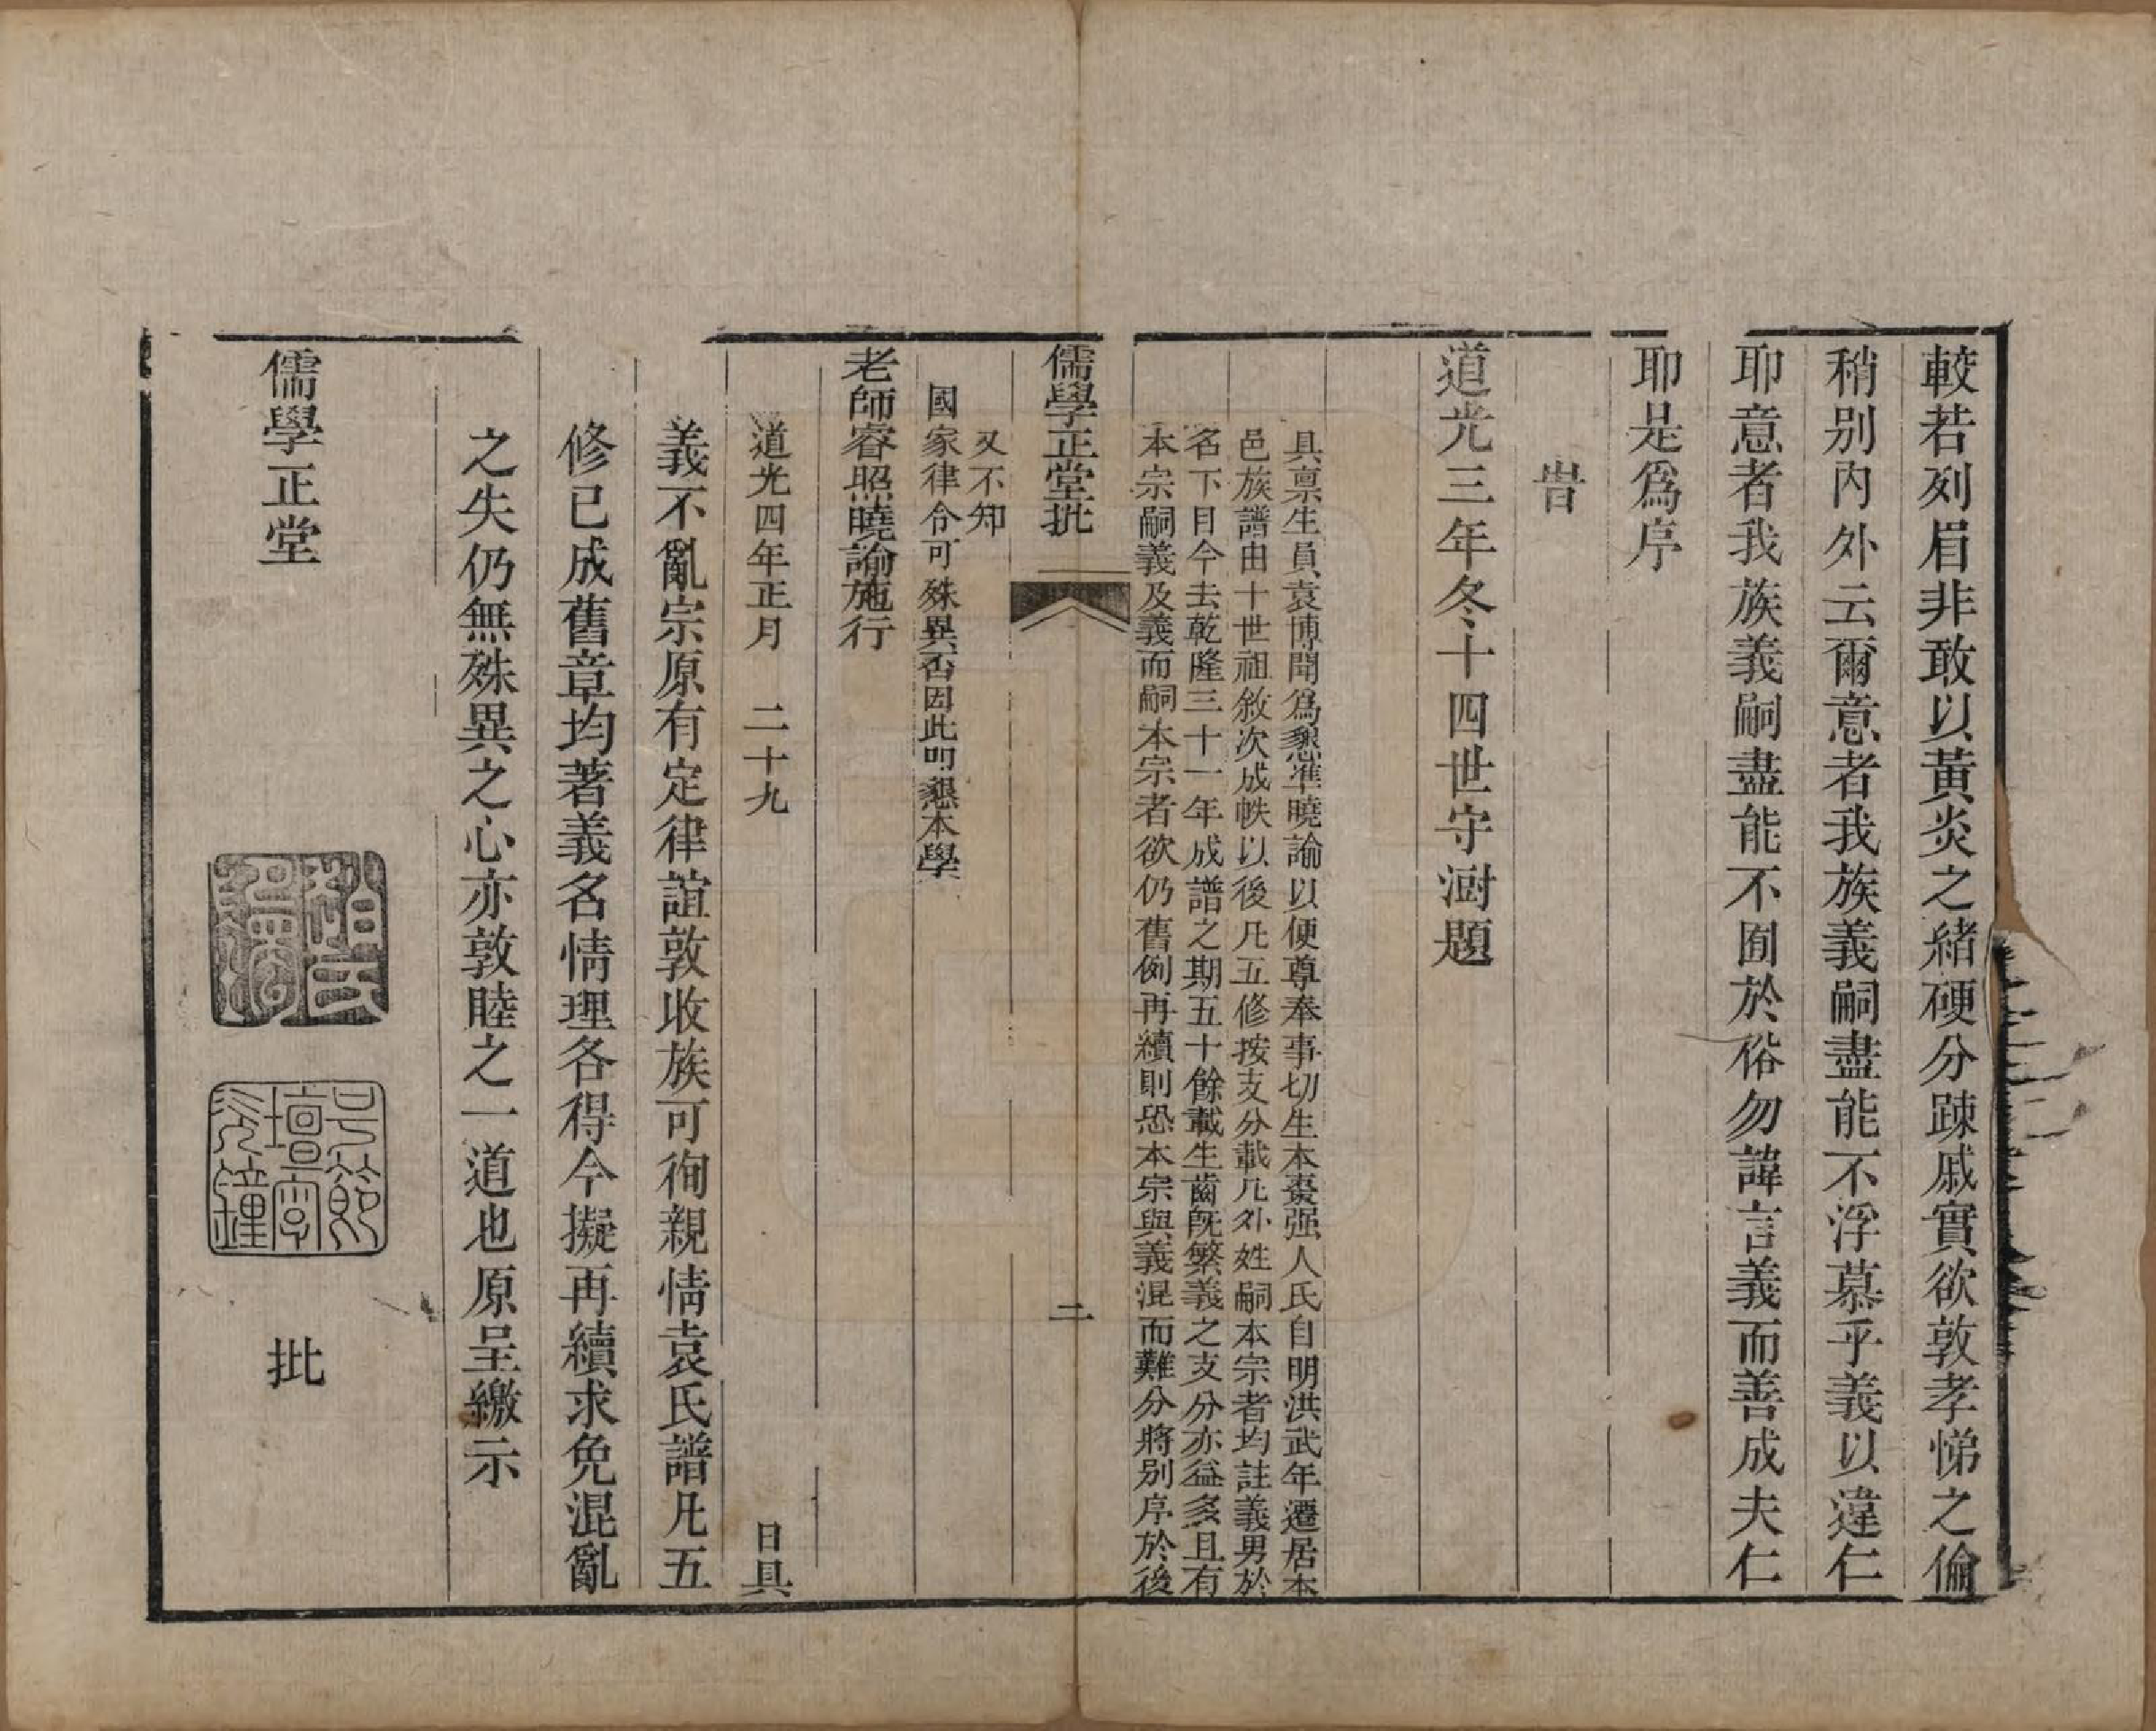 較若列眉非敢以黃炎之緒硬分踈戚實欲敦孝悌之倫
稍別內外云爾意者我族義嗣盡能不浮慕乎義以違仁
耶意者我族義嗣盡能不囿於俗勿諱言義而善成夫仁
耶是爲序
旹
道光三年冬十四世守澍題
具禀生員袁博聞爲懇準曉諭以便尊奉事切生本棗强人氏自明洪武年遷居本
邑族譜由十世祖敘次成帙以後凡五修按支分載凡外姓嗣本宗者均註義男於
名下目今去乾隆三十一年成譜之期五十餘載生齒旣繁義之支分亦益多且有
本宗嗣義及義而嗣本宗者欲仍舊例再續則恐本宗與義混而難分將別序於後
儒學正堂批
二
又不知
國家律令可殊異否因此叩懇本學
老師睿照曉諭施行
道光四年正月 二十九 日具
義不亂宗原有定律誼敦收族可徇親情袁氏譜凡五
修已成舊章均著義名情理各得今擬再續求免混亂
之失仍無殊異之心亦敦睦之一道也原呈繳示
儒學正堂 批